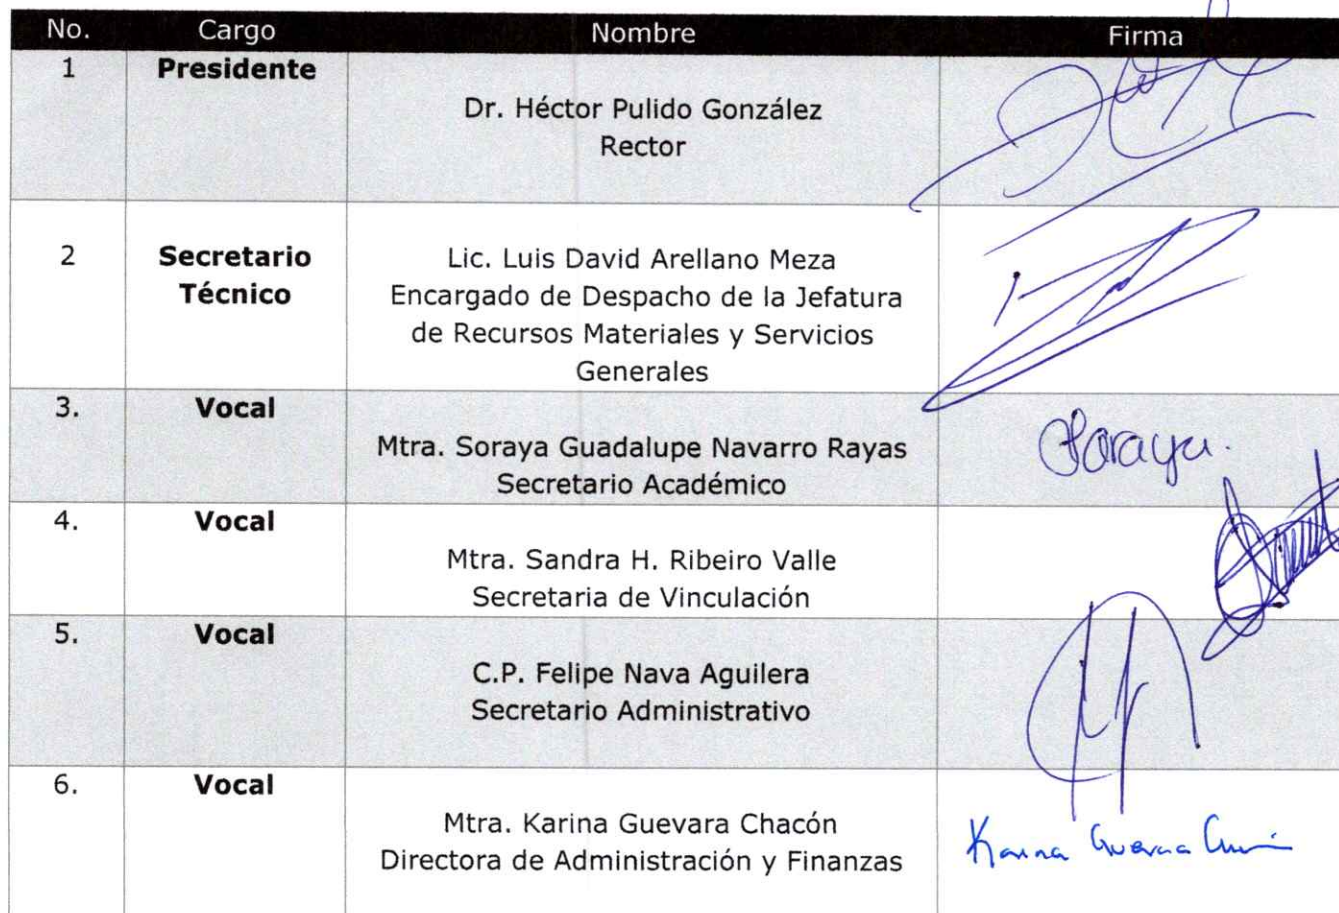 No. Cargo Nombre Firma
1 Presidente
Dr. Héctor Pulido González
Rector
2 Secretario Técnico
Lic. Luis David Arellano Meza
Encargado de Despacho de la Jefatura
de Recursos Materiales y Servicios
Generales
3. Vocal
Mtra. Soraya Guadalupe Navarro Rayas
Secretario Académico
Soraya.
4. Vocal
Mtra. Sandra H. Ribeiro Valle
Secretaria de Vinculación
5. Vocal
C.P. Felipe Nava Aguilera
Secretario Administrativo
6. Vocal
Mtra. Karina Guevara Chacón
Directora de Administración y Finanzas
Karina Guevara